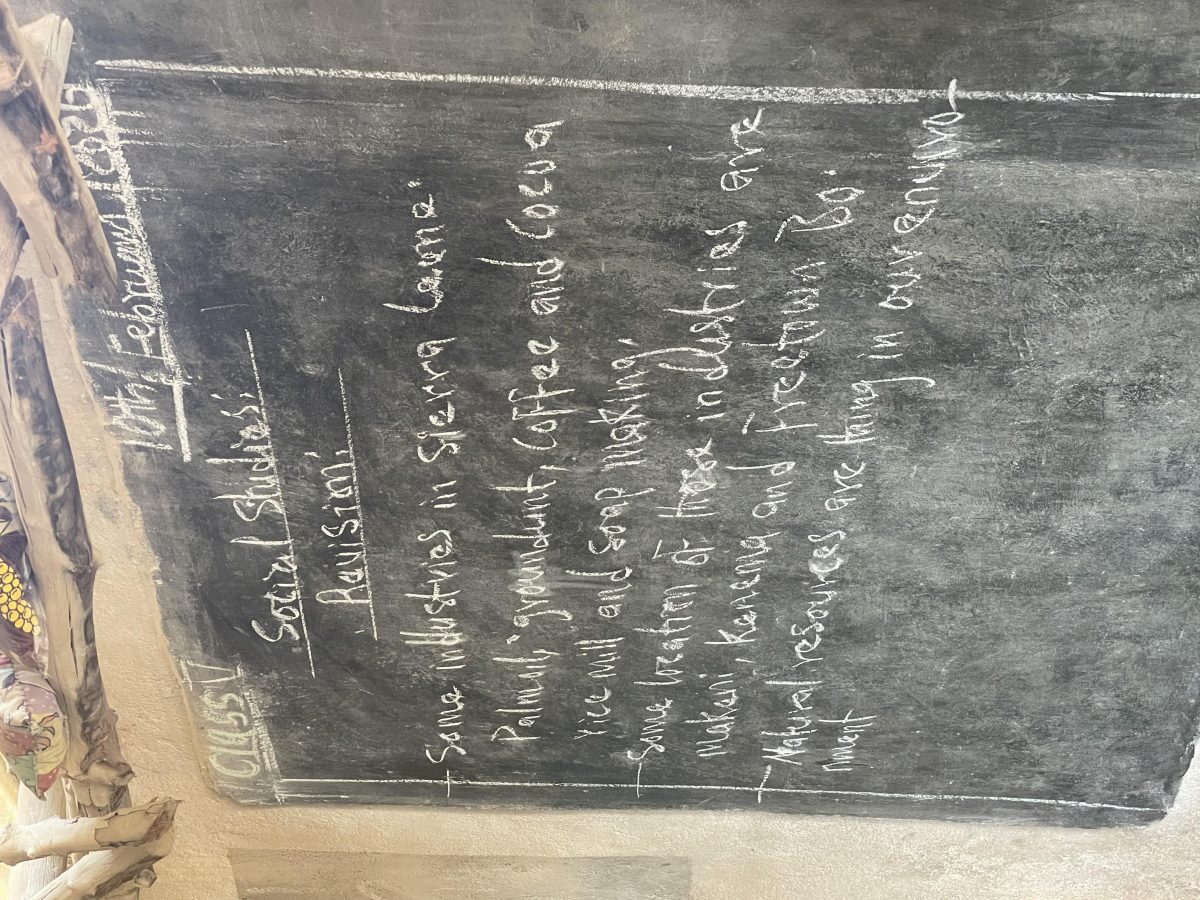 Class V
10th/February/
Social Studies:
Ravision:
Some industries in Sierra Laona:
Palmul, groundunt, Coffee and Cocoa
rice mill and Soap making,
Some location of these industries are
Makani, Kanama and Freetown Bo.
Natural resources are thing in our anuiro-
nment